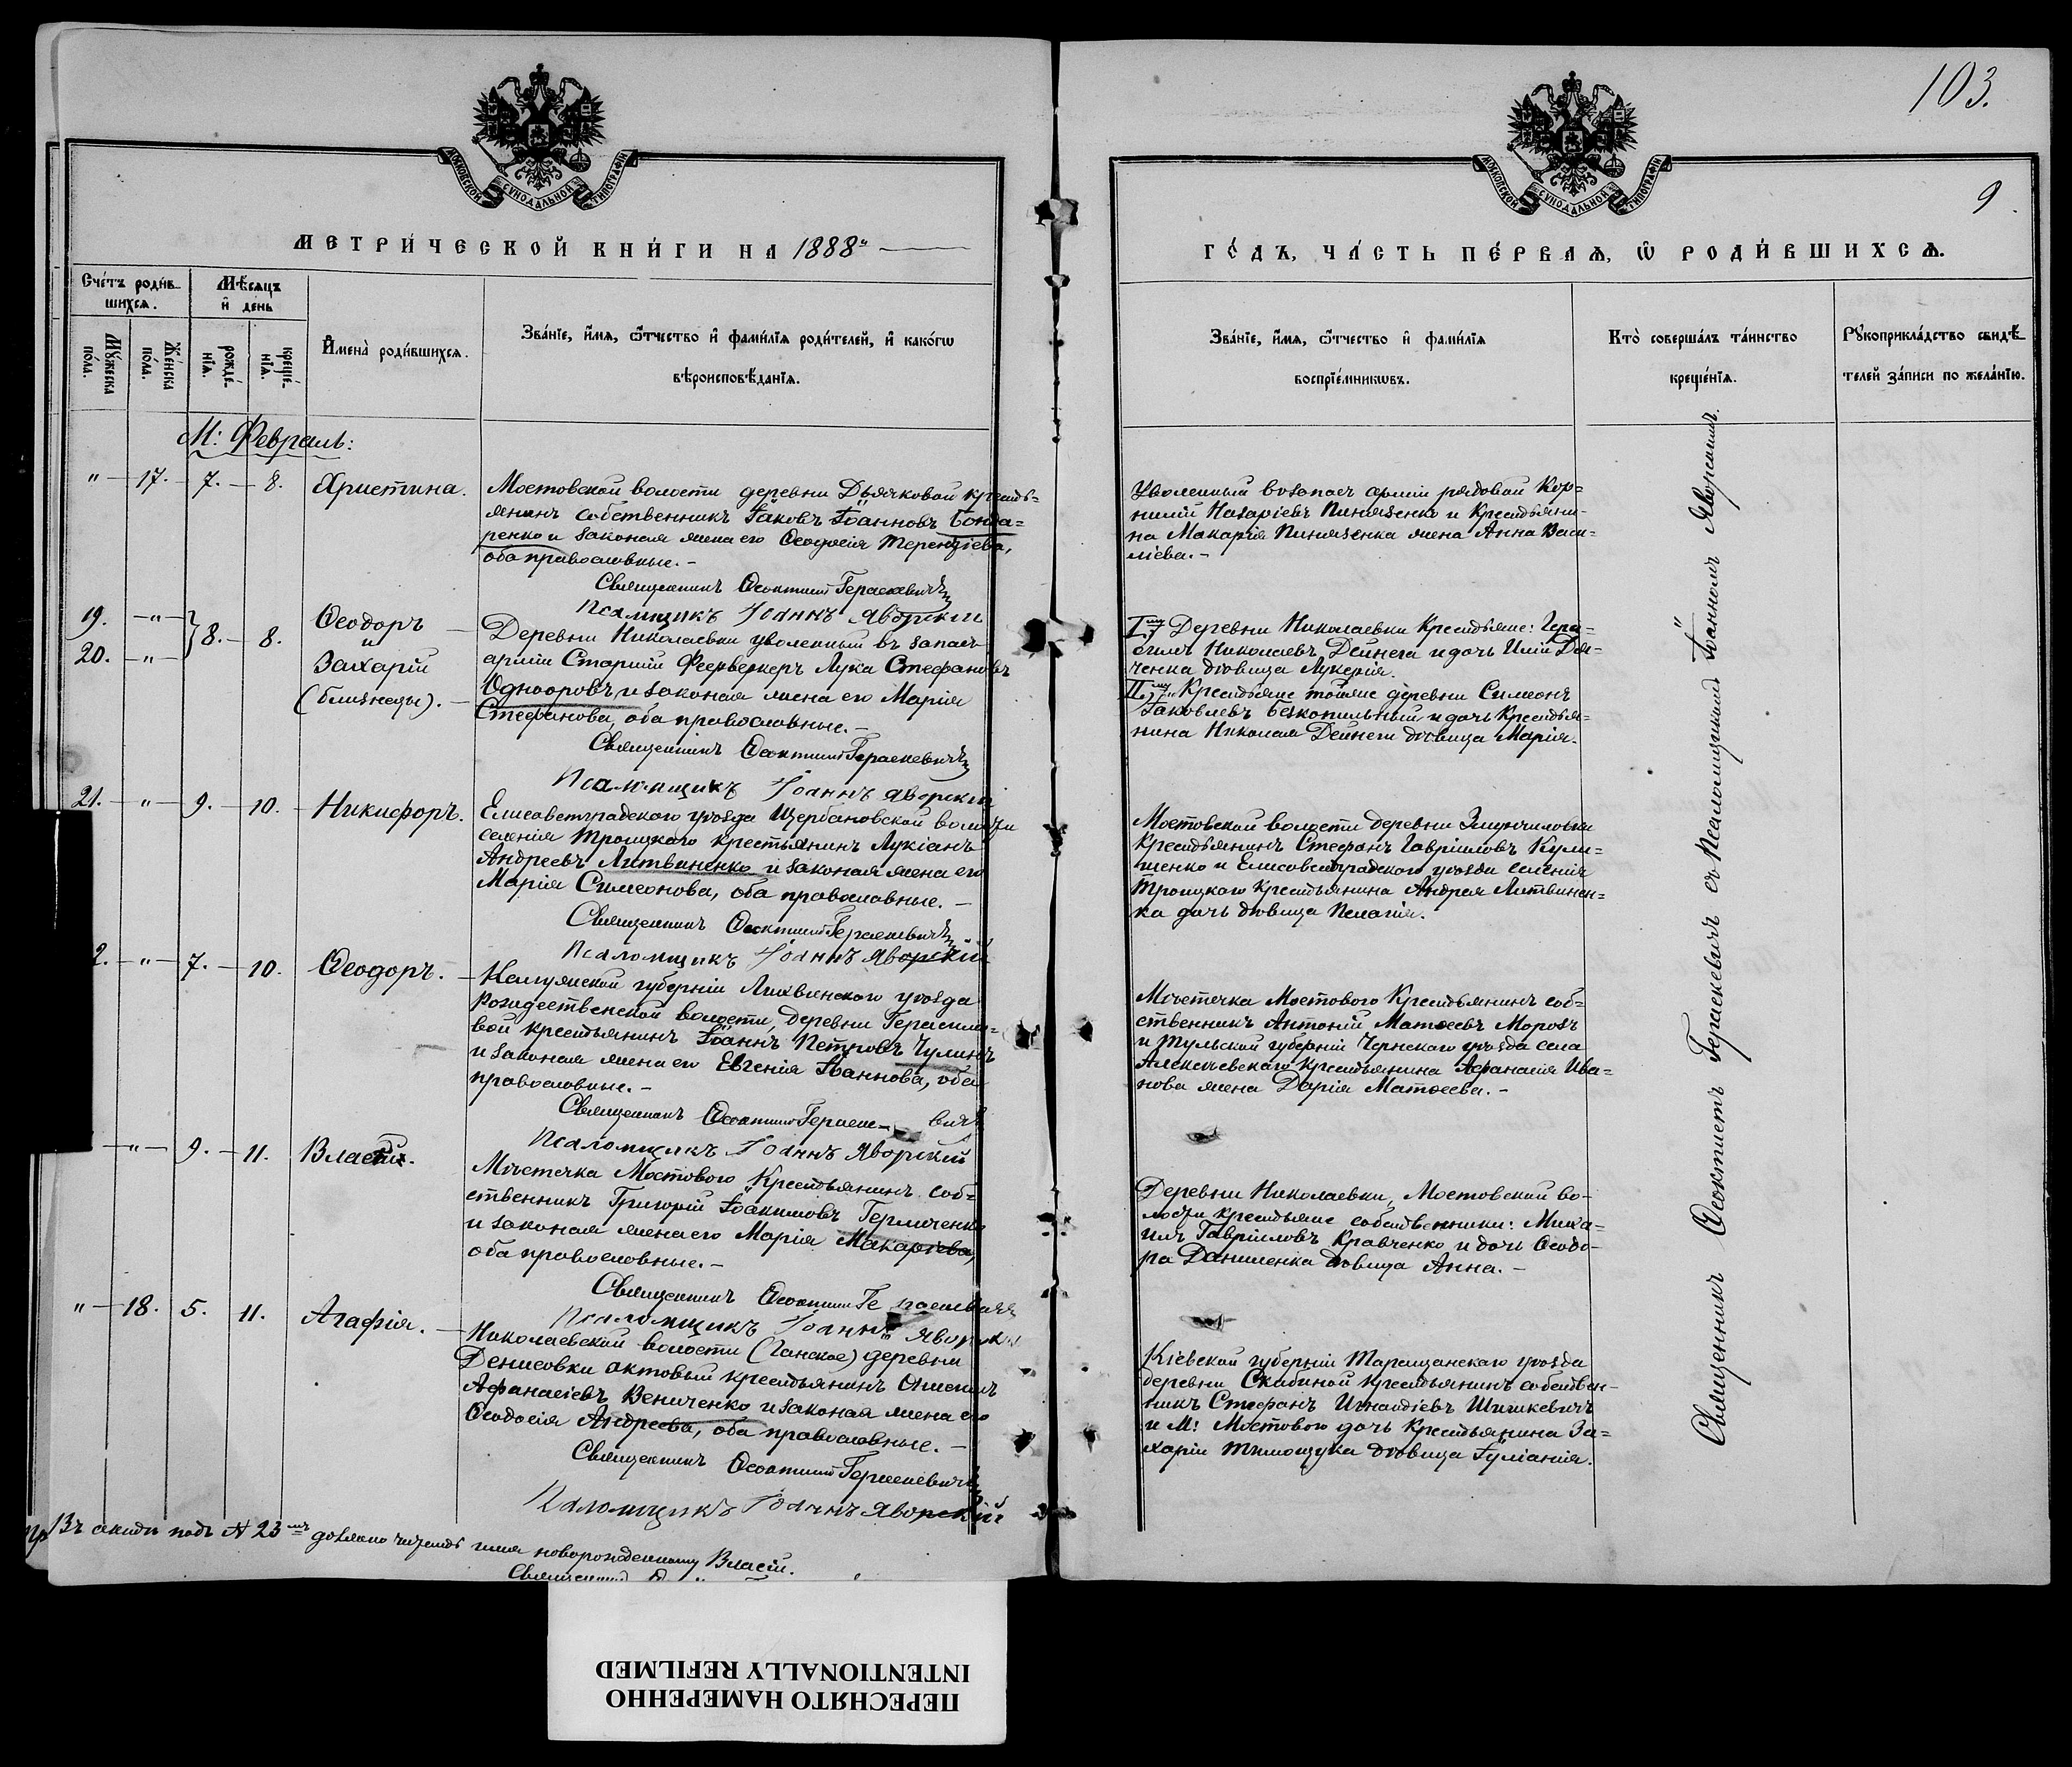 103.
МОСКОВСКОЙ СУНОДАЛЬНОЙ ТИПОГРАФІИ
МОСКОВСКОЙ СУНОДАЛЬНОЙ ТИПОГРАФІИ
9.
МЕТРИ́ЧЕСКОЙ КНИ́ГИ НА 1888й
ГО́ДЪ, ЧА́СТЬ ПЕ́РВАѦ, Ѡ РОДИ́ВШИХСѦ.
Сче́тъ роди́в-
шихсѧ.
Мѣ́сѧцъ
и҆ де́нь
Мꙋ́жеска
по́ла.
Же́нска
по́ла.
рожде́-
нїѧ.
креще́-
нїѧ.
И҆мена̀ роди́вшихсѧ.
Зва́нїе, и҆́мѧ, ѻ҆́тчество и҆ фами́лїѧ роди́телей, и҆ како́гѡ
вѣроисповѣ́данїѧ.
Зва́нїе, и҆́мѧ, ѻ҆́тчество и҆ фами́лїѧ
воспрїе́мникѡвъ.
Кто̀ соверша́лъ та́инство
креще́нїѧ.
Рꙋкоприкла́дство свидѣ́-
телей за́писи по жела́нїю.
М: Февраль:
" — 17. — 7. — 8. Христина.
Мостовской волости деревни Дьячковой кресть=
янинъ собственникъ Іаковъ Іоанновъ Бонда=
ренко и законая жена его Ѳеодосія Терентіева,
оба православные. –
Священникъ Ѳеоктистъ Гераскевичъ
Псаломщикъ Іоаннъ Яворскій
Уволенный въ запасъ арміи рядовой Кор=
нилій Назаріевъ Пинязенко и Крестьяни-
на Макарія Пинязенка жена Анна Васи=
ліева. –
19. — " —
20. — " — } 8. — 8.
Ѳеодоръ
и
Захарій
(близнецы). –
Деревни Николаевки уволенный въ запасъ
арміи Старшій Фейерверкеръ Лука Стефановъ
Однооровъ, и законая жена его Марія
Стефанова, оба православные. –
Священникъ Ѳеоктистъ Гераскевичъ
Псаломщикъ Іоаннъ Яворскій
I. Деревни Николаевки Крестьяне: Гера-
симъ Николаевъ Дейнега и дочь Иліи
ченка дѣвица Лукерія.
II. Крестьяне тойже деревни Симеонъ
Іаковлевъ Безкопыльный и дочь Крестья=
нина Николая Дейнеги дѣвица Марія.
21. — " — 9. — 10. — Никифоръ.
Елисаветградскаго уѣзда Щербановской волости
селенія Троицкаго крестьянинъ Лукіанъ
Андреевъ Литвиненко и законая жена его
Марія Симеонова, оба православные. –
Священникъ Ѳеоктистъ Гераскевичъ
Псаломщикъ Іоаннъ Яворскій
Мостовской волости деревни
Крестьянинъ Стефанъ Гавріиловъ Кули=
шенко и Елисаветградскаго уѣзда селенія
Троицкаго крестьянина Андрея Литвинен=
ка дочь дѣвица Пелагія.
2. — " — 7. — 10. Ѳеодоръ. –
Калужской губерніи Лихвинскаго уѣзда
Рождественской волости, деревни Герасимо-
вой крестьянинъ Іоаннъ Петровъ Чулинъ
и законая жена его Евгенія Іоаннова, оба
православные. –
Священникъ Ѳеоктистъ Гераске- вичъ
Псаломщикъ Іоаннъ Яворскій
Мѣстечка Мостового Крестьянинъ соб=
ственникъ Антоній Матѳеевъ Морозъ
и Тульской губерніи Чернскаго уѣзда села
Алексѣевскаго Крестьянина Аѳанасія Ива=
нова жена Дарія Матѳеева. –
— " — 9. — 11. Власій.
Мѣстечка Мостового Крестьянинъ соб=
ственникъ Григорій Іоакимовъ Герличенко
и законая жена его Марія Макаріева,
оба православные. –
Священникъ Ѳеоктистъ Ге раскевичъ
Псаломщикъ Іоаннъ Яворскій
Деревни Николаевки, Мостовской во-
лости крестьяне собственники: Миха=
илъ Гавріиловъ Кравченко и дочь Ѳеодо-
ра Даниленка дѣвица Анна. –
" — 18. 5. 11. Агафія. –
Николаевской волости (Ганское) деревни
Денисовки актовый крестьянинъ
Аѳанасіевъ Вениченко и законая жена его
Ѳеодосія Андреева, оба православные. –
Священникъ Ѳеоктистъ Гераскевичъ
Псаломщикъ Іоаннъ Яворскій
Кіевской губерніи Таращанскаго уѣзда
деревни Скибиной крестьянинъ собствен-
никъ Стефанъ Игнатіевъ Шишкевичъ
и М: Мостового дочь Крестьянина За=
харіи Тимощука дѣвица Іуліанія.
Священникъ Ѳеоктистъ Гераскевичъ съ Псаломщикомъ Іоанномъ Яворскимъ.
Въ подъ № 23мъ должно читать имя новорожденному Власій.
Священникъ
ПЕРЕСНЯТО НАМЕРЕННО
INTENTIONALLY REFILMED